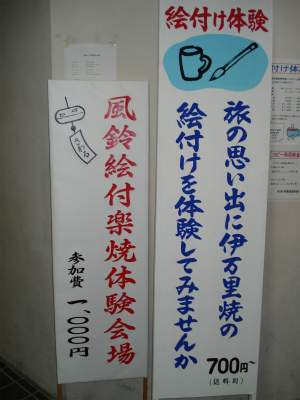 絵付け体験
旅の思い出に伊万里焼の
絵付けを体験してみませんか
700円~
(送料別)
風鈴絵付楽焼体験会場
参加費 一、〇〇〇円